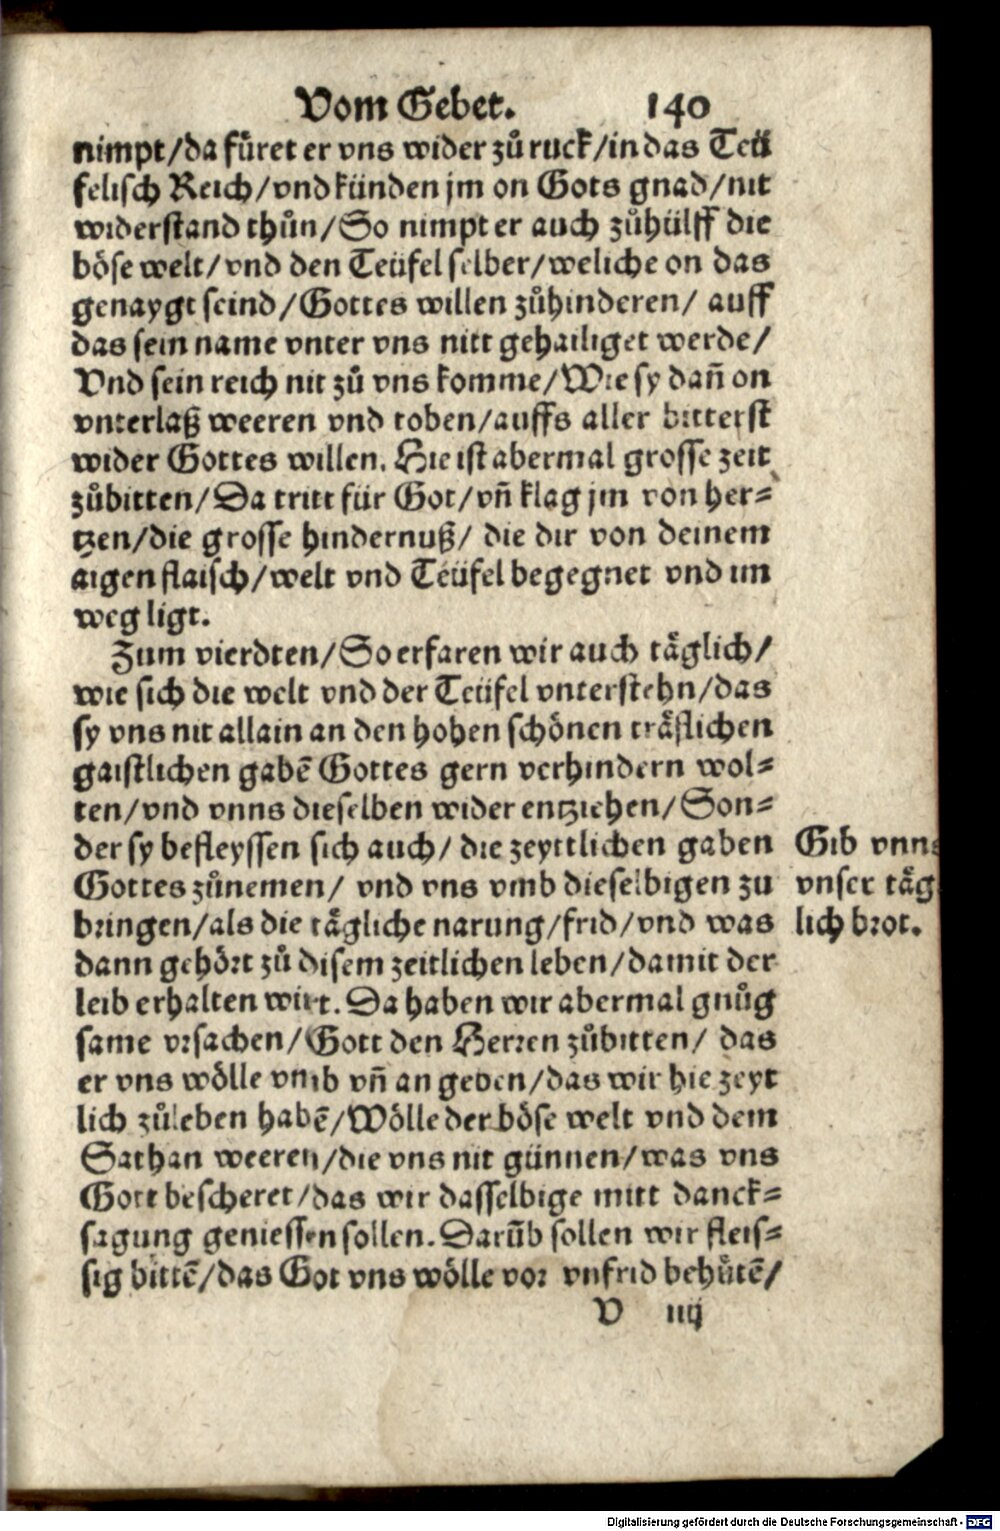 Vom Gebet. 140
nimpt/da fuͤret er vns wider zuͦ ruck/in das Teü
felisch Reich/vnd künden jm on Gots gnad/nit
widerstand thuͦn/So nimpt er auch zuͦhülff die
böse welt/vnd den Teüfel selber/weliche on das
genaygt seind/Gottes willen zuͦhinderen/ auff
das sein name vnter vns nitt gehailiget werde/
Vnd sein reich nit zuͦ vns komme/Wie sy dañ on
vnterlaß weeren vnd toben/auffs aller bitterst
wider Gottes willen. Hie ist abermal grosse zeit
zuͦbitten/Da tritt für Got/vñ klag jm von her⸗
tzen/die grosse hindernuß/ die dir von deinem
aigen flaisch/welt vnd Teüfel begegnet vnd im
weg ligt.
Zum vierdten/So erfaren wir auch täglich/
wie sich die welt vnd der Teüfel vnterstehn/das
sy vns nit allain an den hohen schönen träflichen
gaistlichen gabē Gottes gern verhindern wol⸗
ten/vnd vnns dieselben wider entziehen/Son⸗
der sy befleyssen sich auch/ die zeyttlichen gaben
Gottes zuͦnemen/ vnd vns vmb dieselbigen zu
bringen/als die tägliche narung/frid/vnd was
dann gehört zuͦ disem zeitlichen leben/damit der
leib erhalten wirt. Da haben wir abermal gnuͦg
same vrsachen/Gott den Herren zuͦbitten/ das
er vns wölle vmb vñ an geben/das wir hie zeyt
lich zuͦleben habē/Wölle der böse welt vnd dem
Sathan weeren/die vns nit günnen/was vns
Gott bescheret/das wir dasselbige mitt danck⸗
sagung geniessen sollen. Darūb sollen wir fleis⸗
sig bittē/das Got vns wölle vor vnfrid behuͤtē/
V iiij
Gib vnns
vnser täg
lich brot.
Digitalisierung gefördert durch die Deutsche Forschungsgemeinschaft - DFG